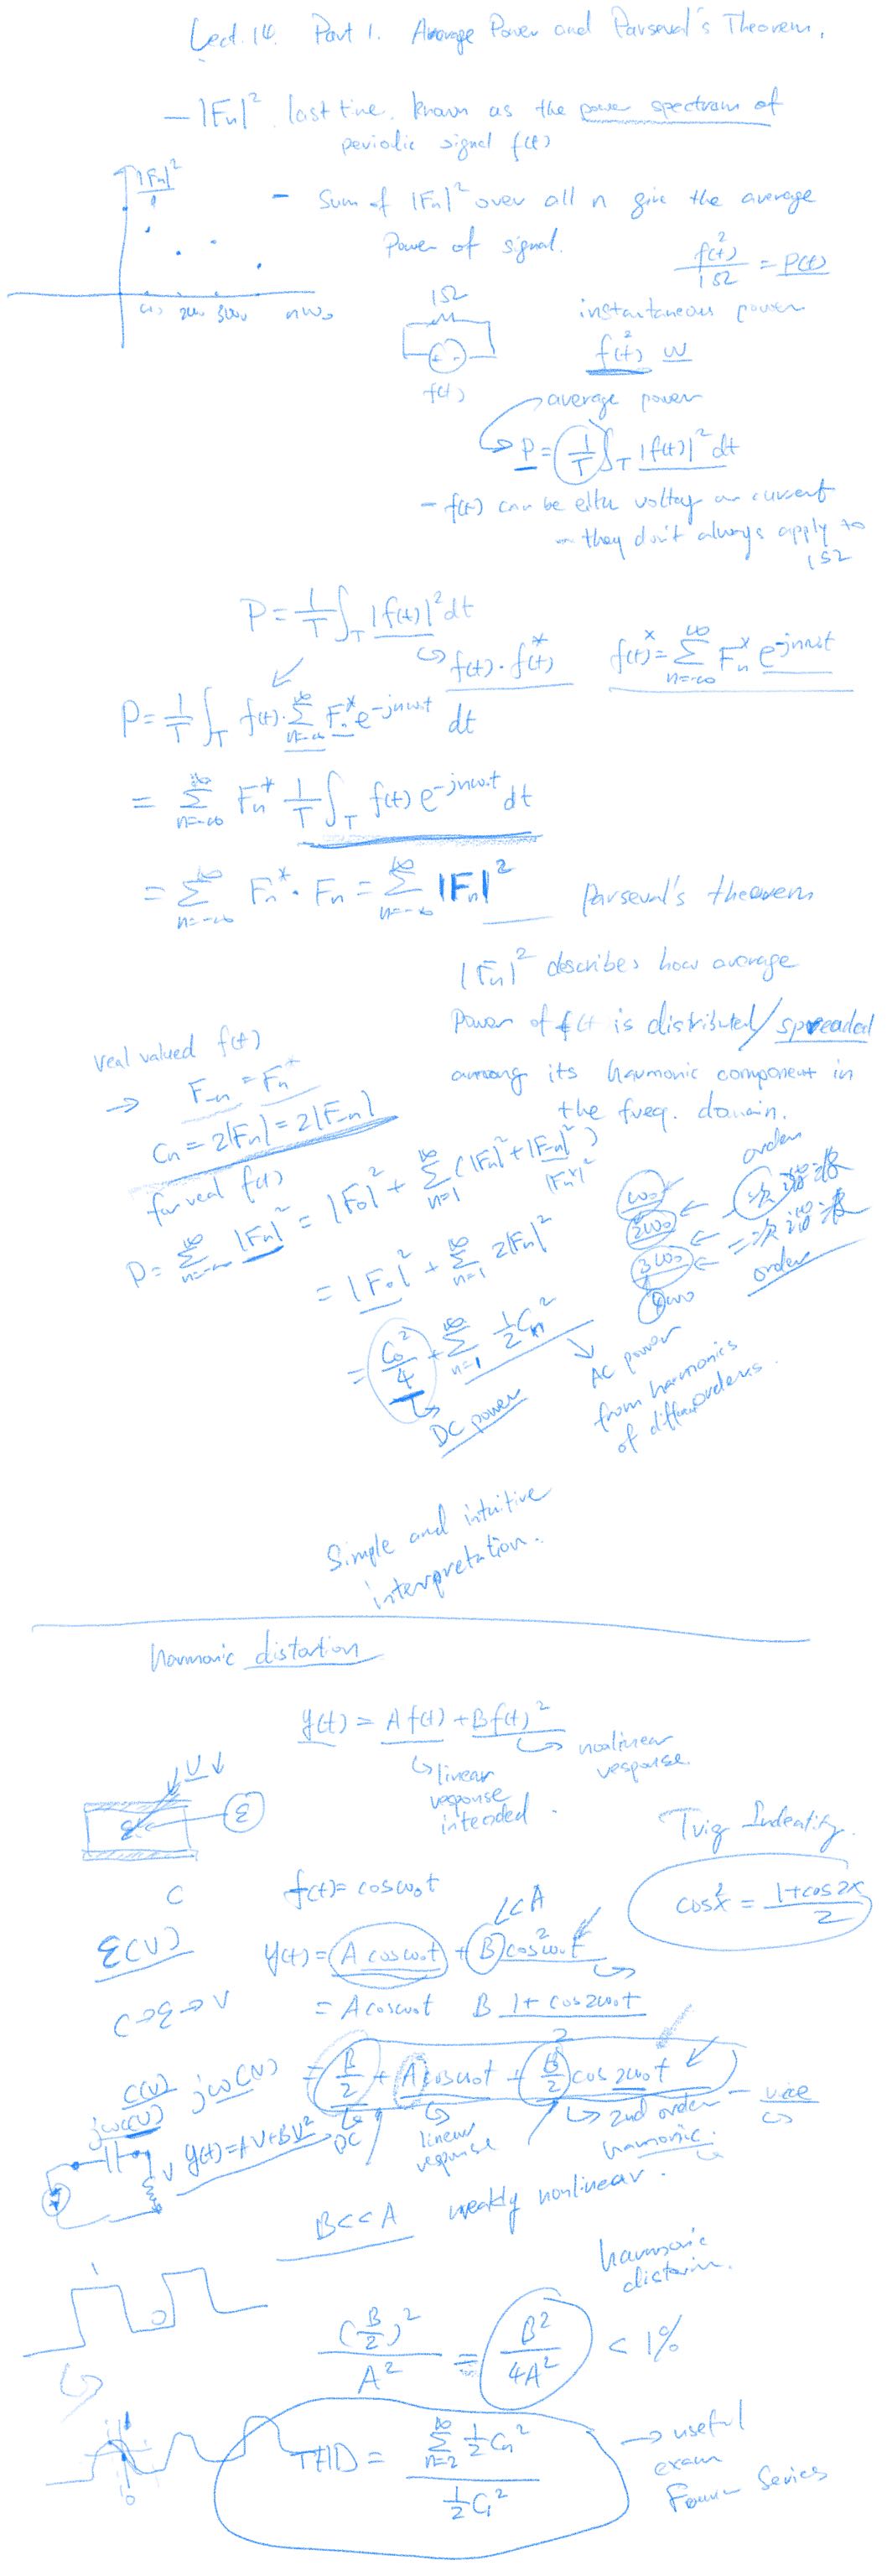 Lect. 14. Part 1. Average Power and Parseval's Theorem.
- |Fn|² last time, known as the power spectrum of
periodic signal f(t)
|Fn|²
- Sum of |Fn|² over all n give the average
Power of signal.
f(t)²/1Ω = P(t)
ω₀ 2ω₀ 3ω₀ nω₀
1Ω
f(t)
instantaneous power
f(t)² W
average power
P = 1/T ∫_T |f(t)|² dt
- f(t) can be either voltage or current
- they don't always apply to
1Ω
P = 1/T ∫_T |f(t)|² dt
f(t)·f(t)* f(t)* = Σ_{n=-∞}^{∞} Fn* e^{-jnω₀t}
P = 1/T ∫_T f(t)·Σ_{n=-∞}^{∞} Fn* e^{-jnω₀t} dt
= Σ_{n=-∞}^{∞} Fn* 1/T ∫_T f(t) e^{-jnω₀t} dt
= Σ_{n=-∞}^{∞} Fn*·Fn = Σ_{n=-∞}^{∞} |Fn|² Parseval's theorem
|Fn|² describes how average
Power of f(t) is distributed/spreaded
among its harmonic component in
the freq. domain.
real valued f(t)
→ F-n = Fn*
Cn = 2|Fn| = 2|F-n|
for real f(t)
P = Σ_{n=-∞}^{∞} |Fn|² = |F₀|² + Σ_{n=1}^{∞} (|Fn|² + |F-n|²)
|Fn*|²
= |F₀|² + Σ_{n=1}^{∞} 2|Fn|²
= C₀²/4 + Σ_{n=1}^{∞} ½Cn²
DC power
AC power
from harmonics
of different orders.
order
ω₀
2ω₀ ← 一次谐波
3ω₀ ← 二次谐波
4ω₀
order
Simple and intuitive
interpretation.
harmonic distortion
y(t) = Af(t) + Bf(t)²
linear
response
intended.
nonlinear
response.
U
ε
ε
C
ε(U)
C→ε→V
Trig Indeatify.
cos²x = (1+cos2x)/2
f(t) = cosω₀t
<<A
y(t) = A cosω₀t + B cos²ω₀t
= A cosω₀t B (1+cos2ω₀t)/2
= B/2 + A cosω₀t + B/2 cos2ω₀t
DC
linear
response
2nd order
harmonic.
C(V) jωC(V)
jωC(V)
V y(t) = AV+BV²
B<<A weakly nonlinear.
1
0
harmonic
(B/2)²/A² = B²/4A² < 1%
THD = Σ_{n=2}^{∞} ½Cn² / ½C₁²
→ useful
exam
Fourier Series